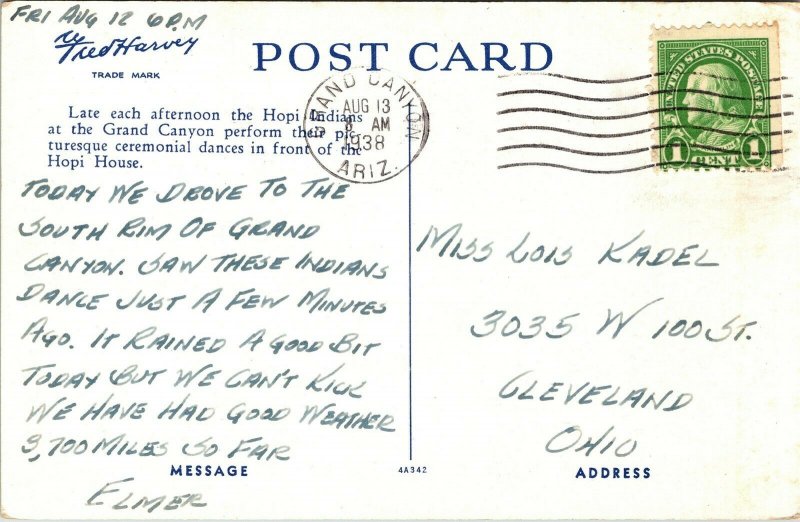 FRI AUG 12 6 P.M
Fred Harvey
TRADE MARK
POST CARD
Late each afternoon the Hopi Indians
at the Grand Canyon perform their pic-
turesque ceremonial dances in front of the
Hopi House.
GRAND CANYON
AUG 13
8 AM
1938
ARIZ.
UNITED STATES POSTAGE
1 CENT 1
TODAY WE DROVE TO THE
SOUTH RIM OF GRAND
CANYON. SAW THESE INDIANS
DANCE JUST A FEW MINUTES
AGO. IT RAINED A GOOD BIT
TODAY BUT WE CAN'T KICK
WE HAVE HAD GOOD WEATHER
3,700 MILES SO FAR
ELMER
MESSAGE
4A342
MISS LOIS KADEL
3035 W 100 ST.
CLEVELAND
OHIO
ADDRESS